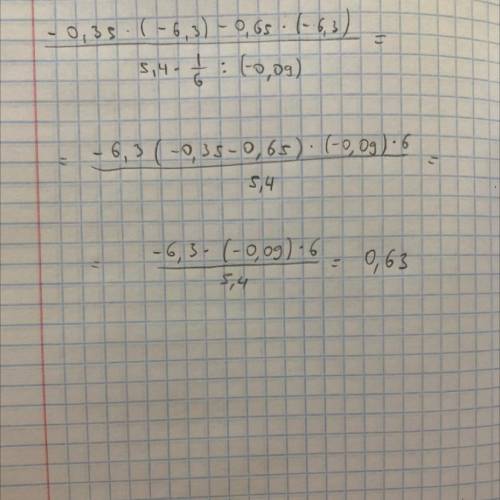 - 0,35 · (-6,3) - 0,65 · (-6,3) =
5,4 · 1/6 : (-0,09)
= -6,3 (-0,35 - 0,65) · (-0,09) · 6 =
5,4
= -6,3 - (-0,09) · 6 = 0,63
5,4